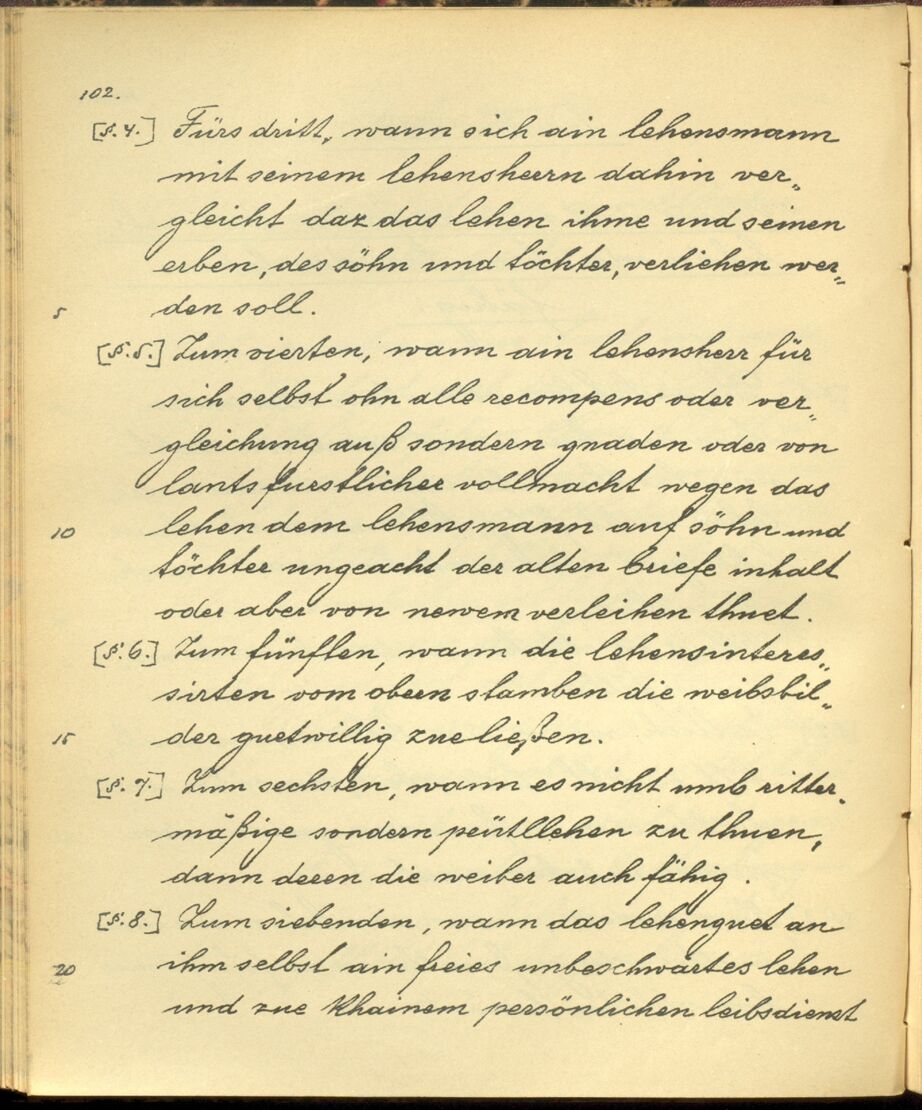 102.
[§.4.] Fürs dritt, wann sich ain lehensmann
mit seinem lehensherrn dahin ver„
gleicht daz das lehen ihme und seinen
erben, des söhn und töchter, verliehen wer„
5 den soll.
[§.5.] Zum vierten, wann ain lehensherr für
sich selbst ohn alle recompens oder ver„
gleichung auß sondern gnaden oder von
lantsfurstlicher vollmacht wegen das
10 lehen dem lehensmann auf söhn und
töchter ungeacht der alten briefe inhalt
oder aber von newem verleihen thuet.
[§.6.] Zum fünften, wann die lehensinteres„
sirten vom obern stamben die weibsbil„
15 der guetwillig zueließen.
[§.7.] Zum sechsten, wann es nicht umb ritter„
mäßige sondern peütllehen zu thuen,
dann deren die weiber auch fähig.
[§.8.] Zum siebenden, wann das lehenguet an
20 ihm selbst ain freies unbeschwärtes lehen
und zue khainem persönlichen leibsdienst